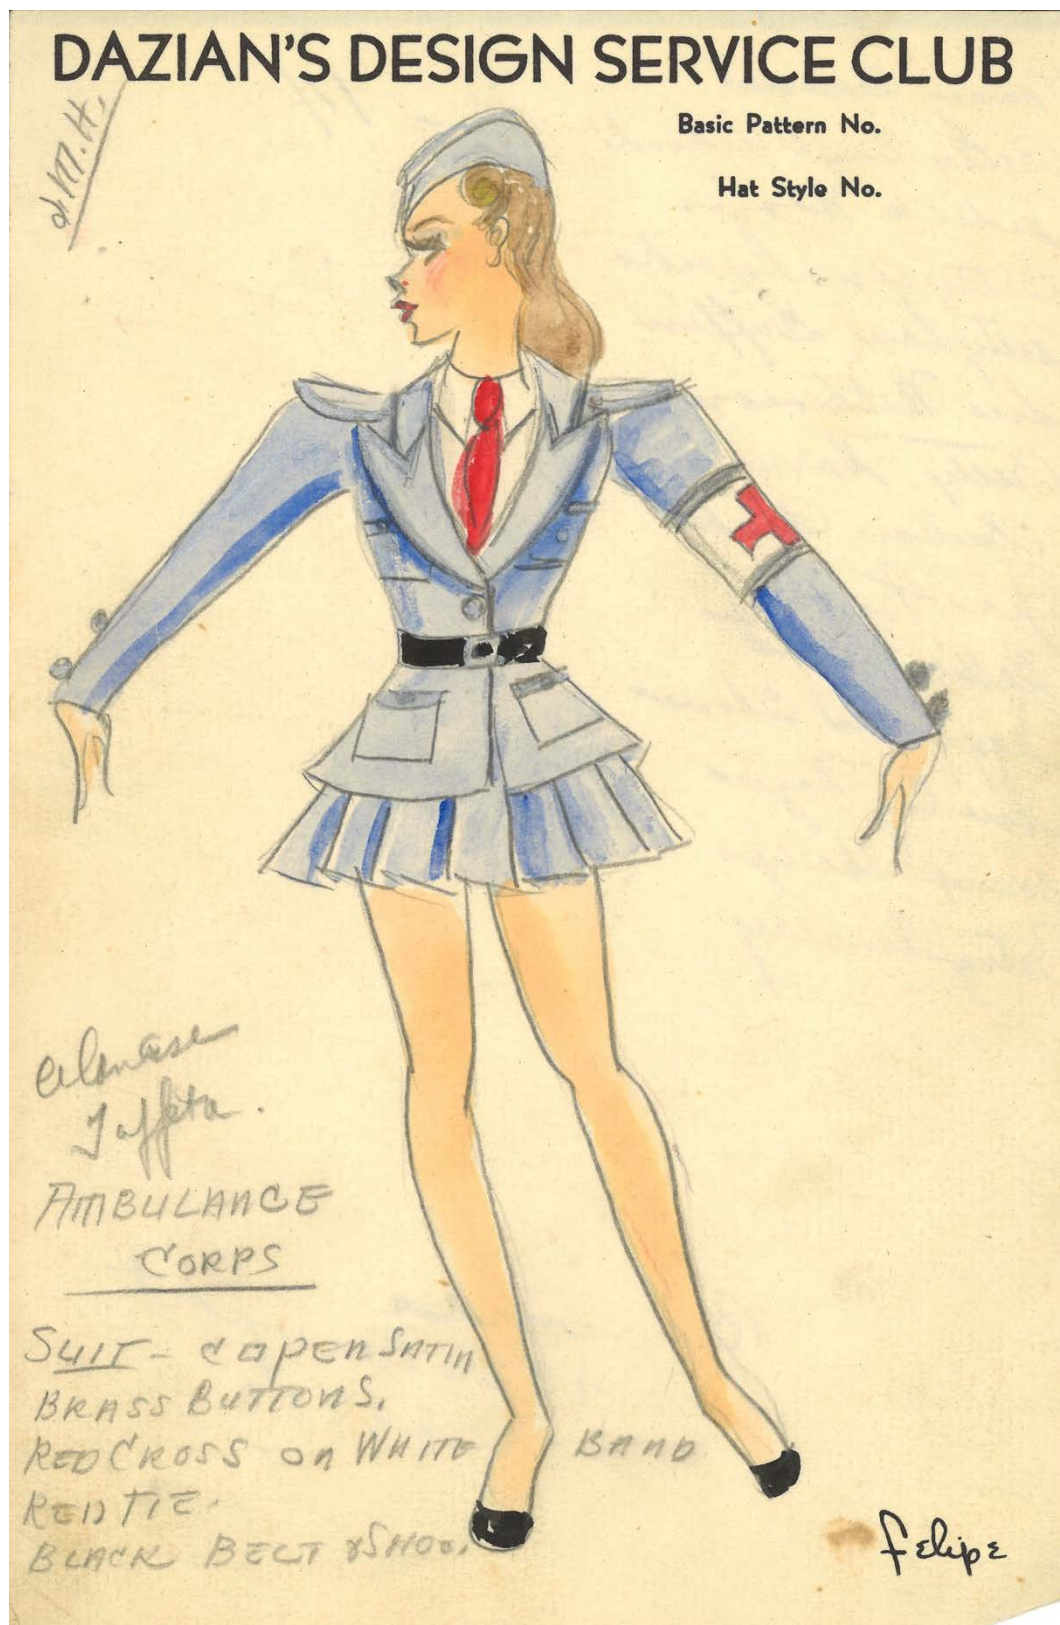 DAZIAN'S DESIGN SERVICE CLUB
Basic Pattern No.
Hat Style No.
M.H.
Taffeta.
AMBULANCE
CORPS
SUIT - COPEN SATIN
BRASS BUTTONS.
RED CROSS on WHITE BAND
RED TIE.
BLACK BELT & SHOE.
Felipe